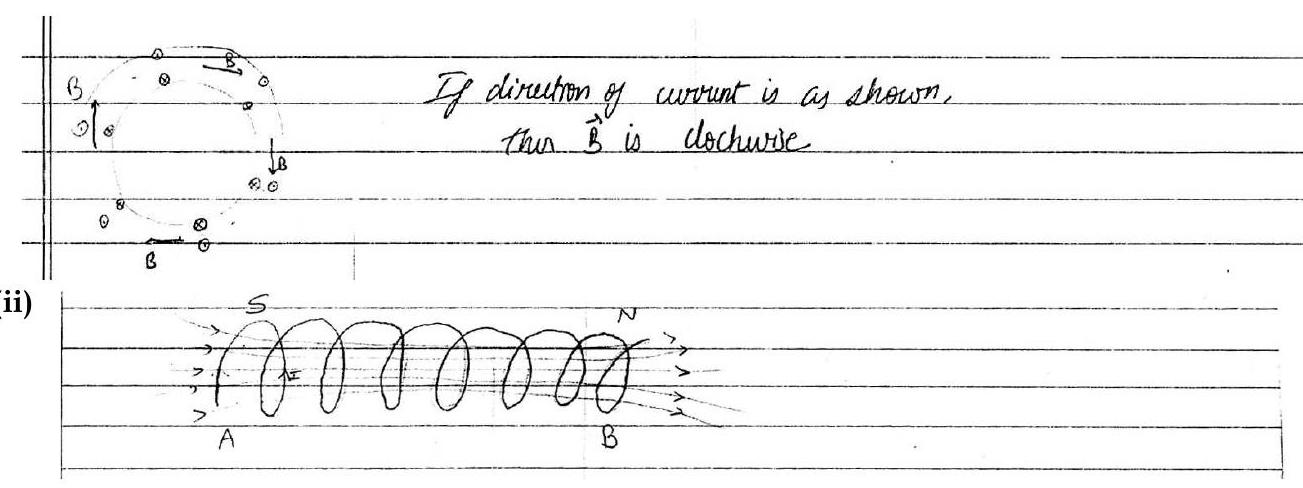 B
If direction of current is as shown,
B
then B is clockwise
B
B
(ii)
S
N
I
A
B